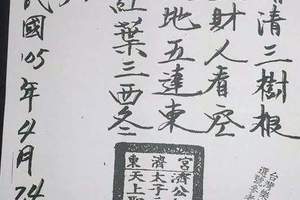 清三樹根
財人看空
地五達東
紅葉三西冬
民國105年4月24
宮濟公
濟太子
東天上聖